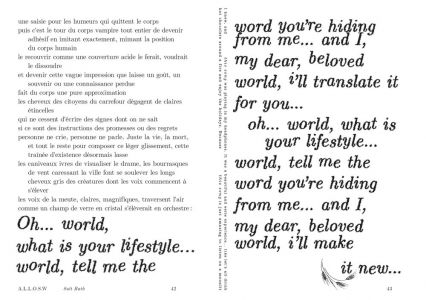 une saison pour les humeurs qui quittent le corps
puis c'est le tour du corps vampire tout entier de devenir
adhésif en imitant exactement, mimant la position
du corps humain
le recouvrir comme une couverture acide le ferait, voudrait
le dissoudre
et devenir cette vague impression que laisse un goût, un
souvenir ou une connaissance perdue
fait du corps une pure approximation
les cheveux des citoyens du carrefour dégagent de claires
étincelles
qui ne cessent d'écrire des signes dont on ne sait
si ce sont des instructions des promesses ou des regrets
personne ne crie, personne ne parle. Juste la vie, la mort,
et tout le reste pour composer ce léger glissement, cette
traînée d'existence désormais lasse
les caniveaux ivres de visualiser le drame, les bourrasques
de vent caressant la ville font se soulever les longs
cheveux gris des créatures dont les voix commencent à
s'élever
les voix de la meute, claires, magnifiques, traversent l'air
comme un champ de verre en cristal s'élèverait en orchestre :
Oh... world,
what is your lifestyle...
world, tell me the
A.L.L.O.S.W Salt Bath 42
word you're hiding
from me... and I,
my dear, beloved
world, i'll translate it
for you...
oh... world, what is
your lifestyle...
world, tell me the
word you're hiding
from me... and I,
my dear, beloved
world, i'll make
it new...
43